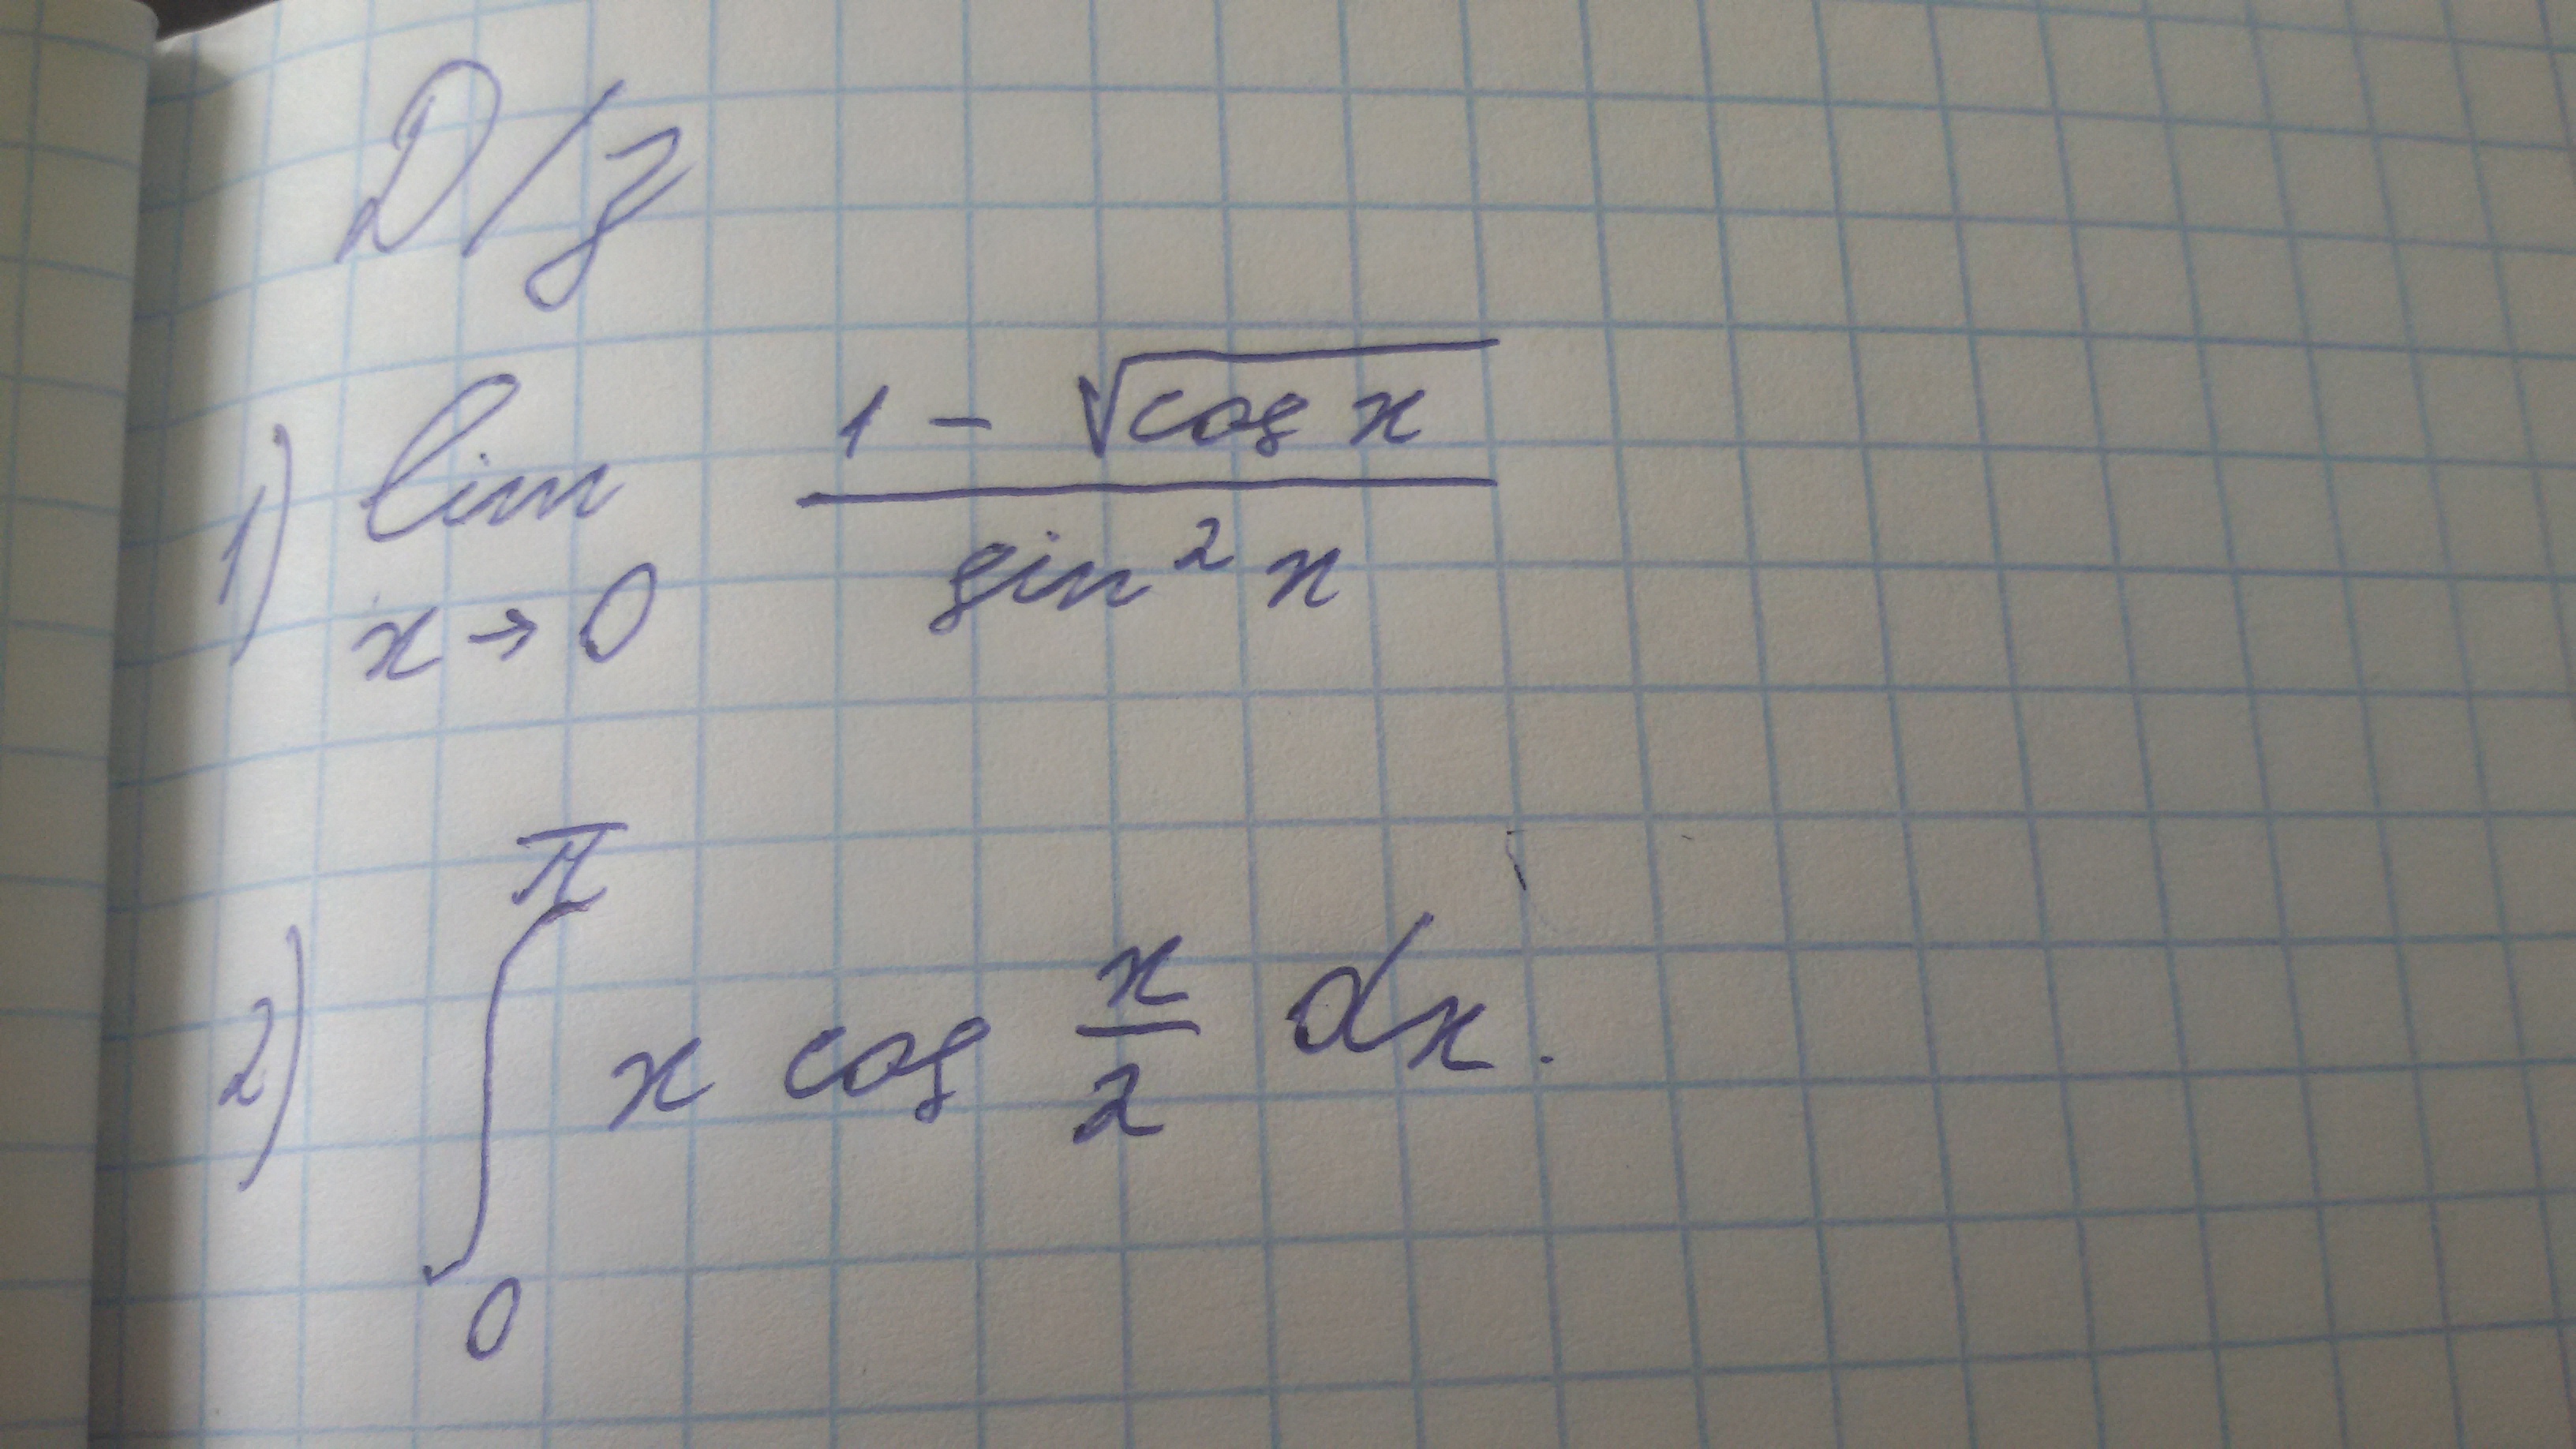 D/z
1) lim x→0 (1 - √cos x) / (sin² x)
2) ∫₀^π x cos x/2 dx.